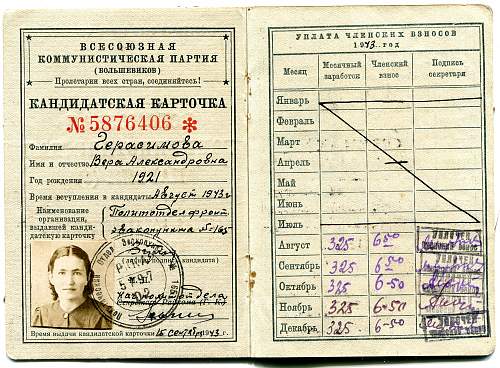 ВСЕСОЮЗНАЯ
КОММУНИСТИЧЕСКАЯ ПАРТИЯ
(БОЛЬШЕВИКОВ)
Пролетарии всех стран, соединяйтесь!
КАНДИДАТСКАЯ КАРТОЧКА
№ 5876406 *
Фамилия Герасимова
Имя и отчество Вера Александровна
Год рождения 1921
Время вступления в кандидаты Август 1943 г
Наименование организации, выдавшей кандидатскую карточку Политотдел фронт
эвакопункта №165
(личная подпись кандидата)
Нач политотдела
Секретарь Райкома
Время выдачи кандидатской карточки 15 сентября 1943 г.
УПЛАТА ЧЛЕНСКИХ ВЗНОСОВ
1943 год
Месяц Месячный заработок Членский взнос Подпись секретаря
Январь
Февраль
Март
Апрель
Май
Июнь
Июль
Август 325 6-50
Сентябрь 325 6-50
Октябрь 325 6-50
Ноябрь 325 6-50
Декабрь 325 6-50